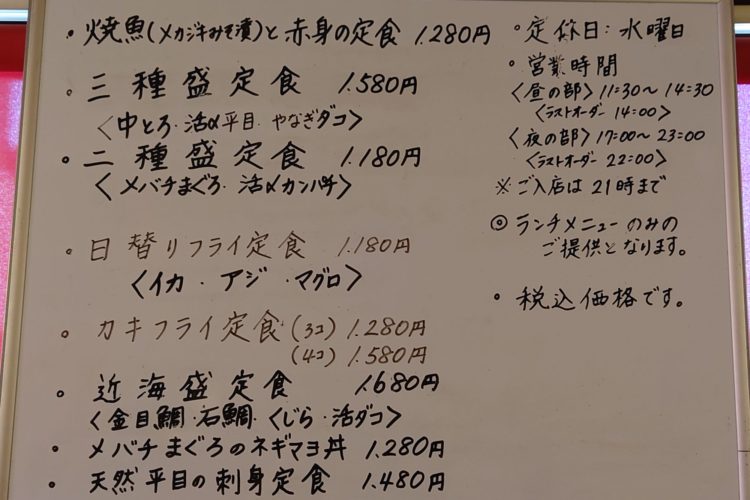 ・焼魚(メカジキみそ漬)と赤身の定食 1.280円
・三種盛定食 1.580円
〈中とろ・活〆平目・やなぎダコ〉
・二種盛定食 1.180円
〈メバチまぐろ・活〆カンパチ〉
・日替りフライ定食 1.180円
〈イカ・アジ・マグロ〉
・カキフライ定食(3コ) 1.280円
(4コ) 1.580円
・近海盛定食 1.680円
〈金目鯛・石鯛・くじら・活ダコ〉
・メバチまぐろのネギマヨ丼 1.280円
・天然平目の刺身定食 1.480円
・定休日:水曜日
・営業時間
〈昼の部〉11:30〜14:30
〈ラストオーダー 14:00〉
〈夜の部〉17:00〜23:00
〈ラストオーダー 22:00〉
※ご入店は21時まで
◎ランチメニューのみの
ご提供となります。
・税込価格です。